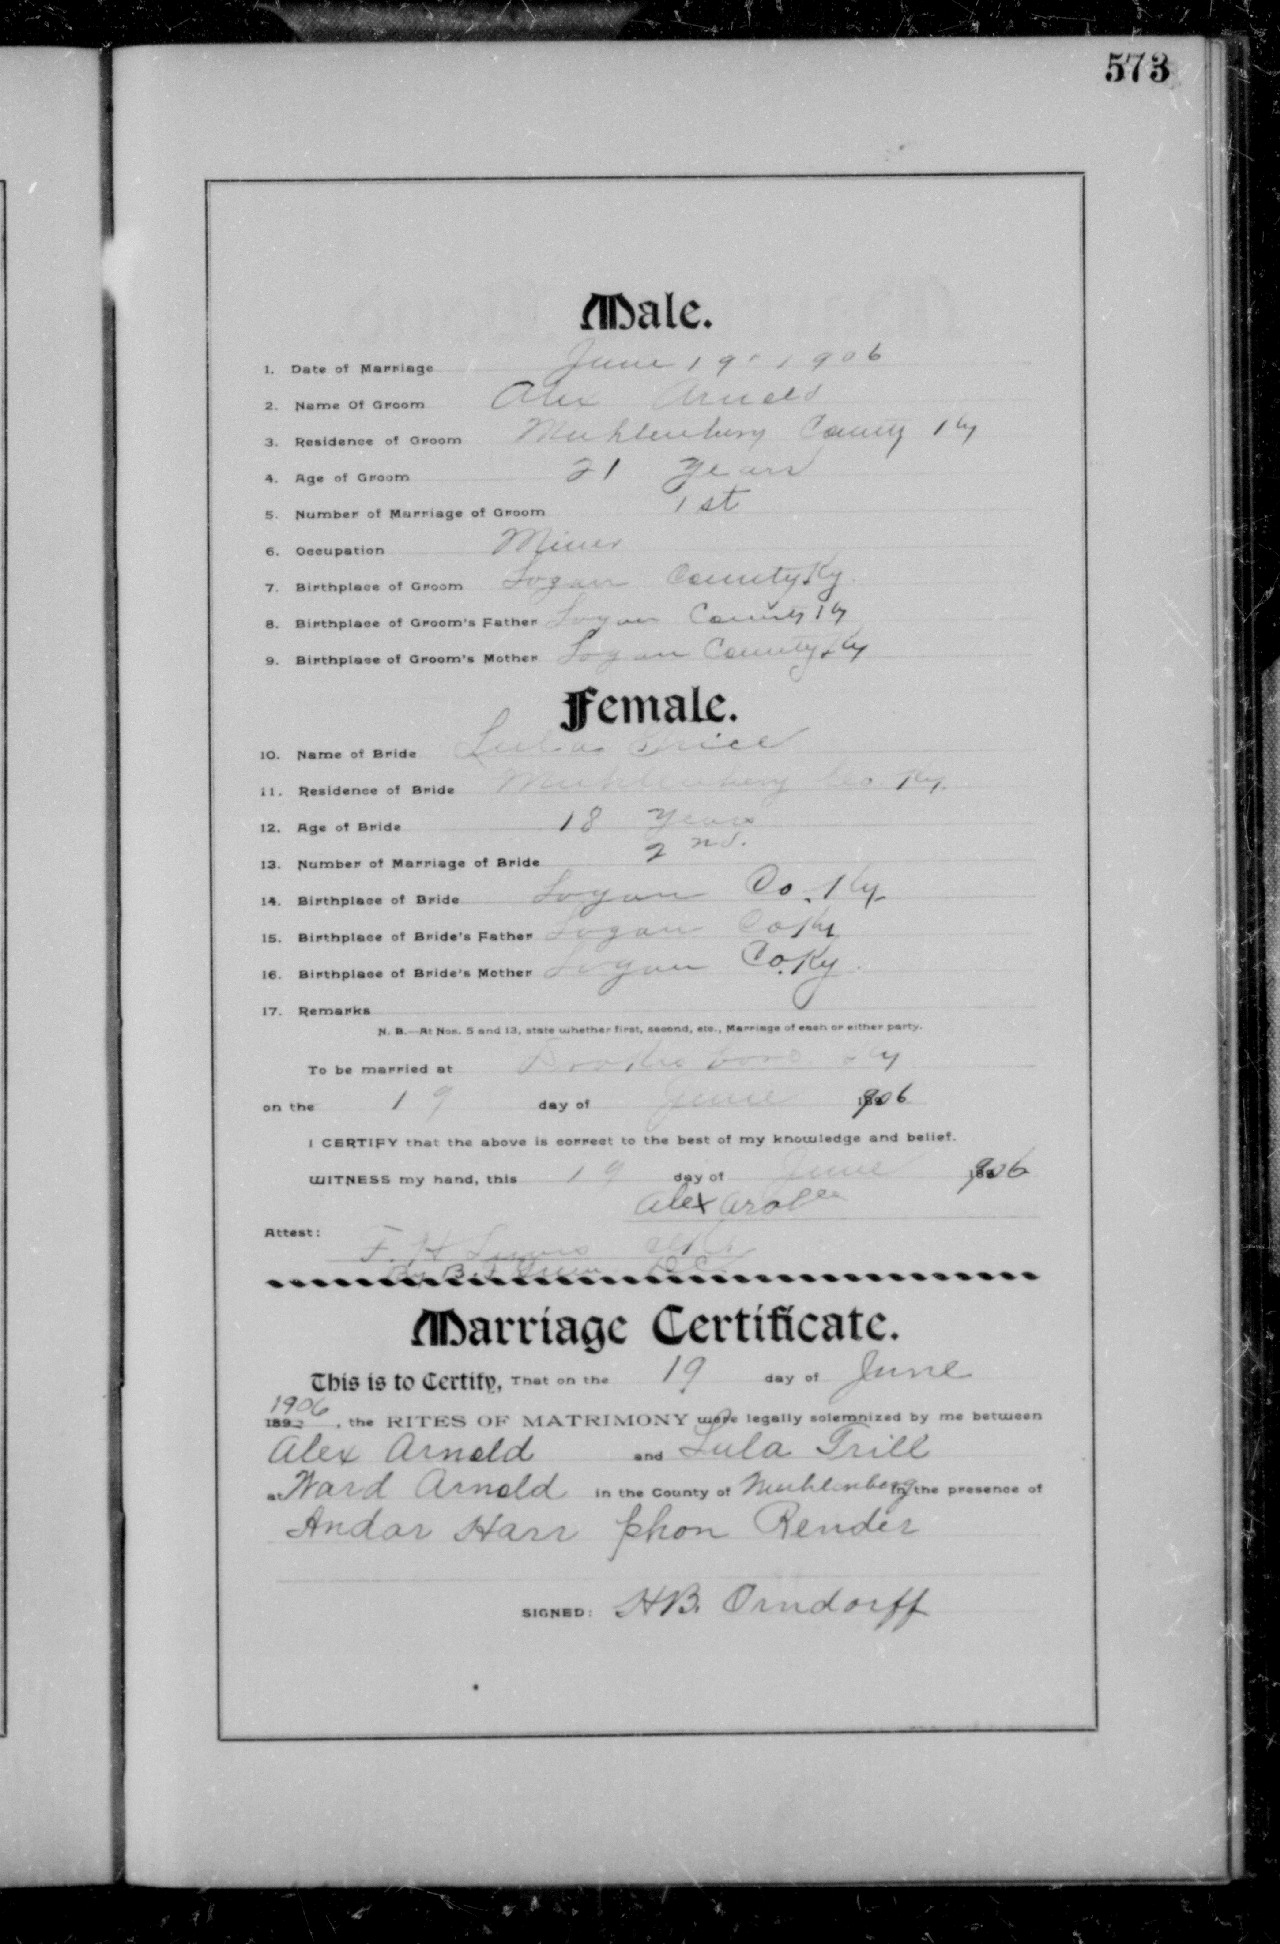 573
Male.
1. Date of Marriage June 19, 1906
2. Name Of Groom Alex Arnold
3. Residence of Groom Muhlenberg County Ky
4. Age of Groom 21 Years
5. Number of Marriage of Groom 1st
6. Occupation Miner
7. Birthplace of Groom Logan County Ky.
8. Birthplace of Groom's Father Logan County Ky
9. Birthplace of Groom's Mother Logan County Ky
Female.
10. Name of Bride Lula
11. Residence of Bride Muhlenberg Co Ky.
12. Age of Bride 18 Years
13. Number of Marriage of Bride 2nd.
14. Birthplace of Bride Logan Co. Ky
15. Birthplace of Bride's Father Logan Co Ky
16. Birthplace of Bride's Mother Logan Co. Ky.
17. Remarks
N. B.—At Nos. 5 and 13, state whether first, second, etc., Marriage of each or either party.
To be married at Ky
on the 19 day of June 1906
I CERTIFY that the above is correct to the best of my knowledge and belief.
WITNESS my hand, this 19 day of June 1906
Alex
Attest: F. H.
By B. D.C.
Marriage Certificate.
This is to Certify, That on the 19 day of June
1906
189 , the RITES OF MATRIMONY were legally solemnized by me between
Alex Arnold and Lula Trill
at Ward Arnold in the County of Muhlenberg in the presence of
Andar Harr phon Render
SIGNED: H.B. Orndorff